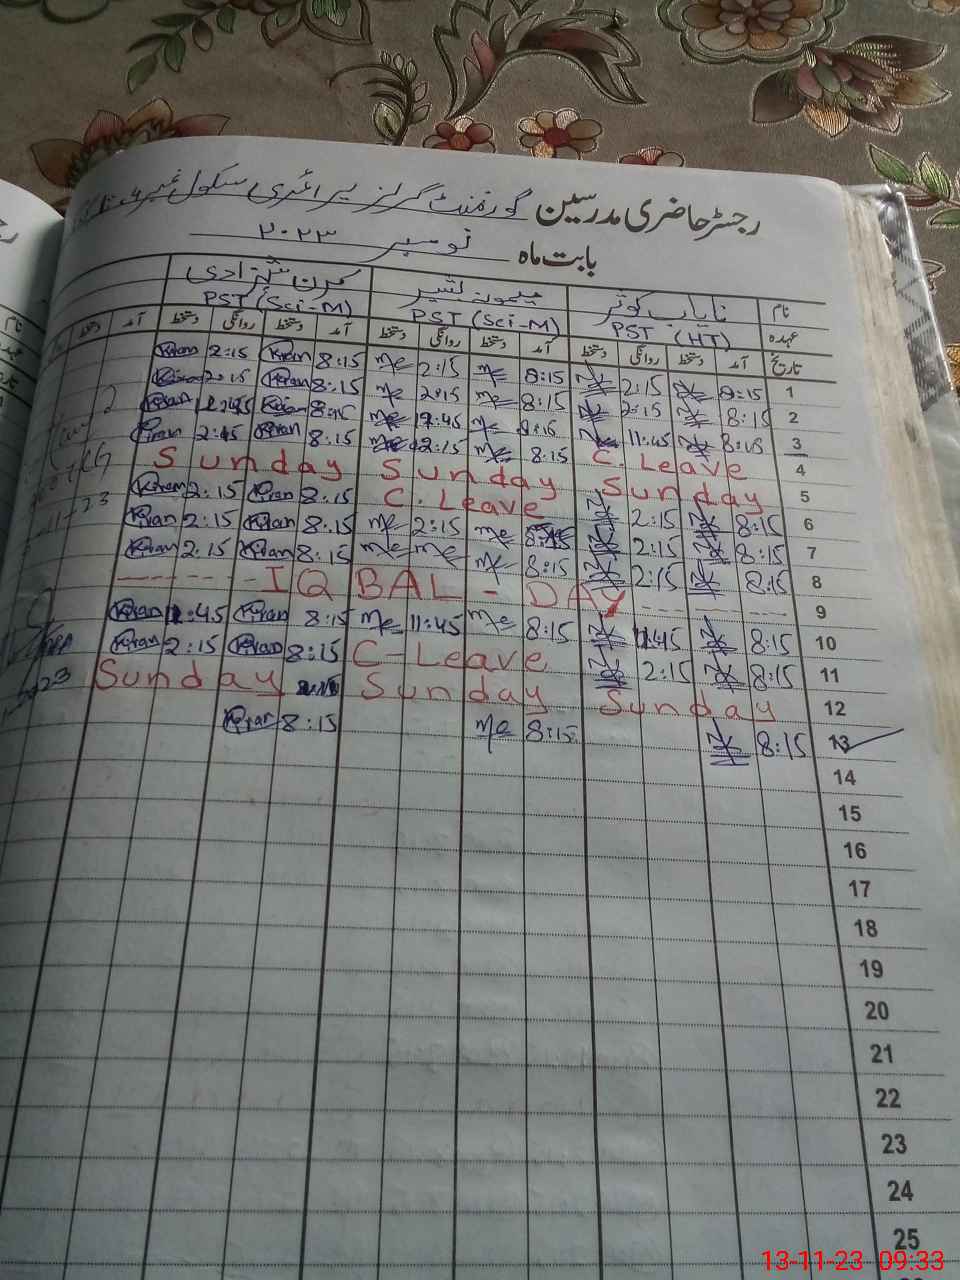 رجسٹر حاضری مدرسین گورنمنٹ گرلز پرائمری سکول نمبر 4
بابت ماہ نومبر ۲۰۲۳
نام نایاب کوثر میمونہ بشیر کرن شہزادی
عہدہ PST (HT) PST (Sci-M) PST (Sci-M)
تاریخ آمد دستخط روانگی دستخط آمد دستخط روانگی دستخط آمد دستخط روانگی دستخط آمد دستخط
1 8:15 2:15 8:15 me 2:15 me 8:15 Kiran 2:15 Kiran
2 8:15 2:15 8:15 me 2:15 me 8:15 Kiran 2:15 Kiran
3 8:15 11:45 8:15 me 11:45 me 8:15 Kiran Kiran
4 C. Leave 8:15 me 2:15 me 8:15 Kiran 2:15 Kiran
5 Sunday Sunday Sunday
6 8:15 2:15 C. Leave 8:15 Kiran 2:15 Kiran
7 8:15 2:15 me 2:15 me 8:15 Kiran 2:15 Kiran
8 8:15 2:15 8:15 me me me 8:15 Kiran 2:15 Kiran
9 IQBAL - DAY
10 8:15 11:45 8:15 me 11:45 me 8:15 Kiran 11:45 Kiran
11 8:15 2:15 C-Leave 8:15 Kiran 2:15 Kiran
12 Sunday Sunday Sunday
13 8:15 8:15 me 8:15 Kiran
14
15
16
17
18
19
20
21
22
23
24
25
13-11-23 09:33